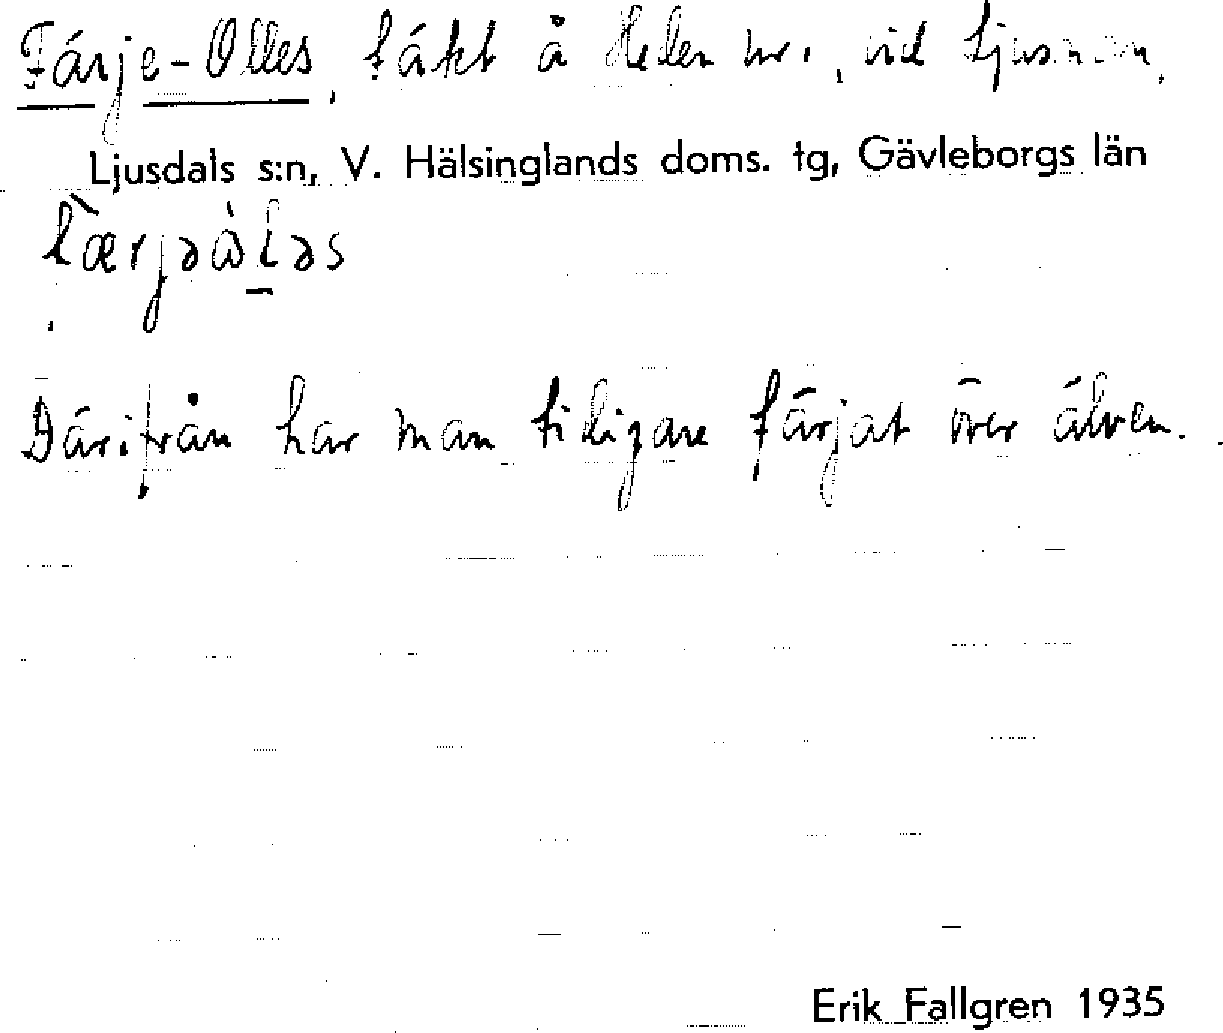 Färje-Olles, täkt å Heden nr 1, vid Ljusnan,
Ljusdals s:n, V. Hälsinglands doms. tg, Gävleborgs län
Därifrån har man tidigare färjat över älven.
Erik Fallgren 1935